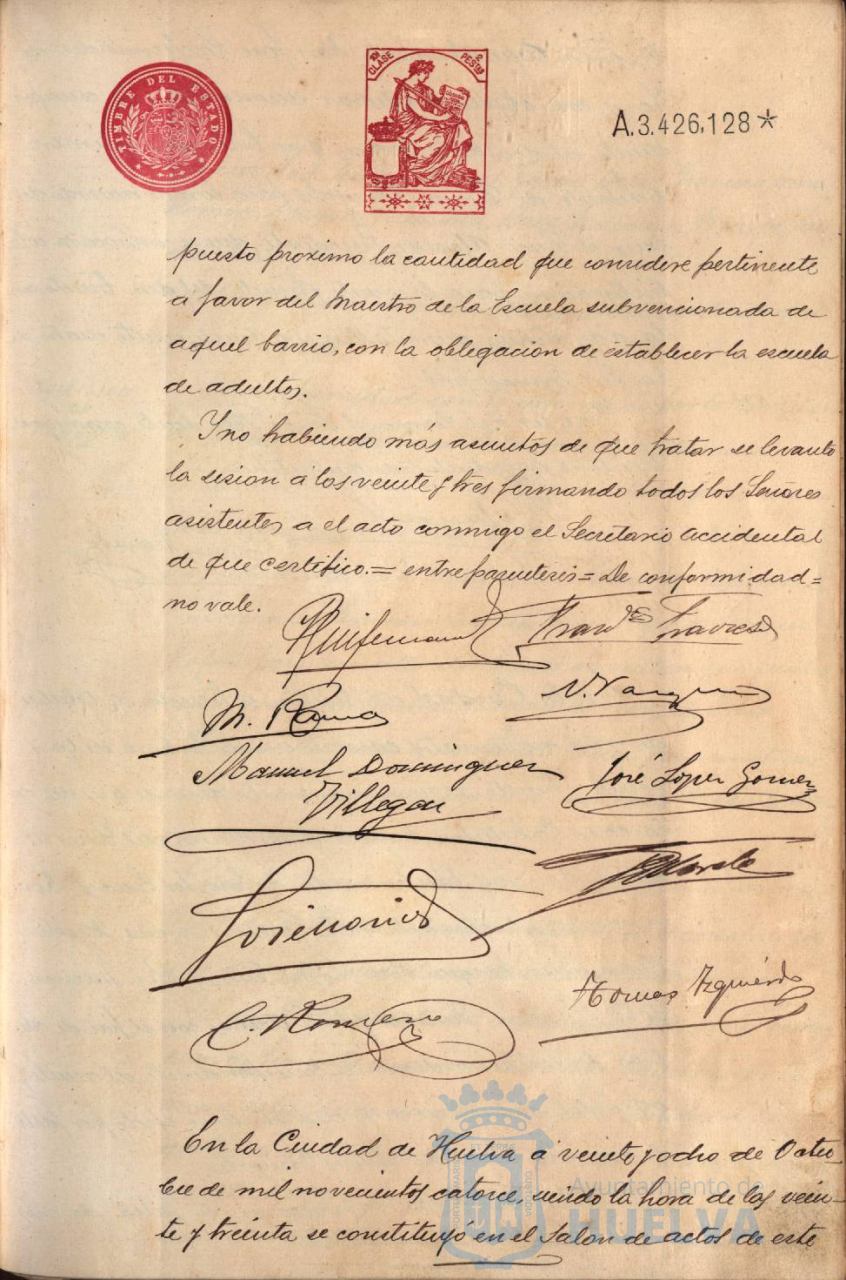 TIMBRE DEL ESTADO
CLASE
2 PESETAS
A.3.426,128*
puesto proximo la cantidad que considere pertinente
a favor del Maestro de la Escuela subvencionada de
aquel barrio, con la obligacion de establecer la escuela
de adultos.
Y no habiendo más asuntos de que tratar se levanto
la sesion á las veinte y tres firmando todos los Señores
asistentes a el acto conmigo el Secretario accidental
de que certifico.= entreparentesis= De conformidad=
no vale.
M. Ramos
Manuel Dominguez
José Lopez Gomez
Villegas
C. Romero
Tomas Izquierdo
En la Ciudad de Huelva á veinte y ocho de Octu-
bre de mil novecientos catorce, siendo la hora de las vein-
te y treinta se constituyó en el Salon de actos de este
Ayuntamiento de
HUELVA